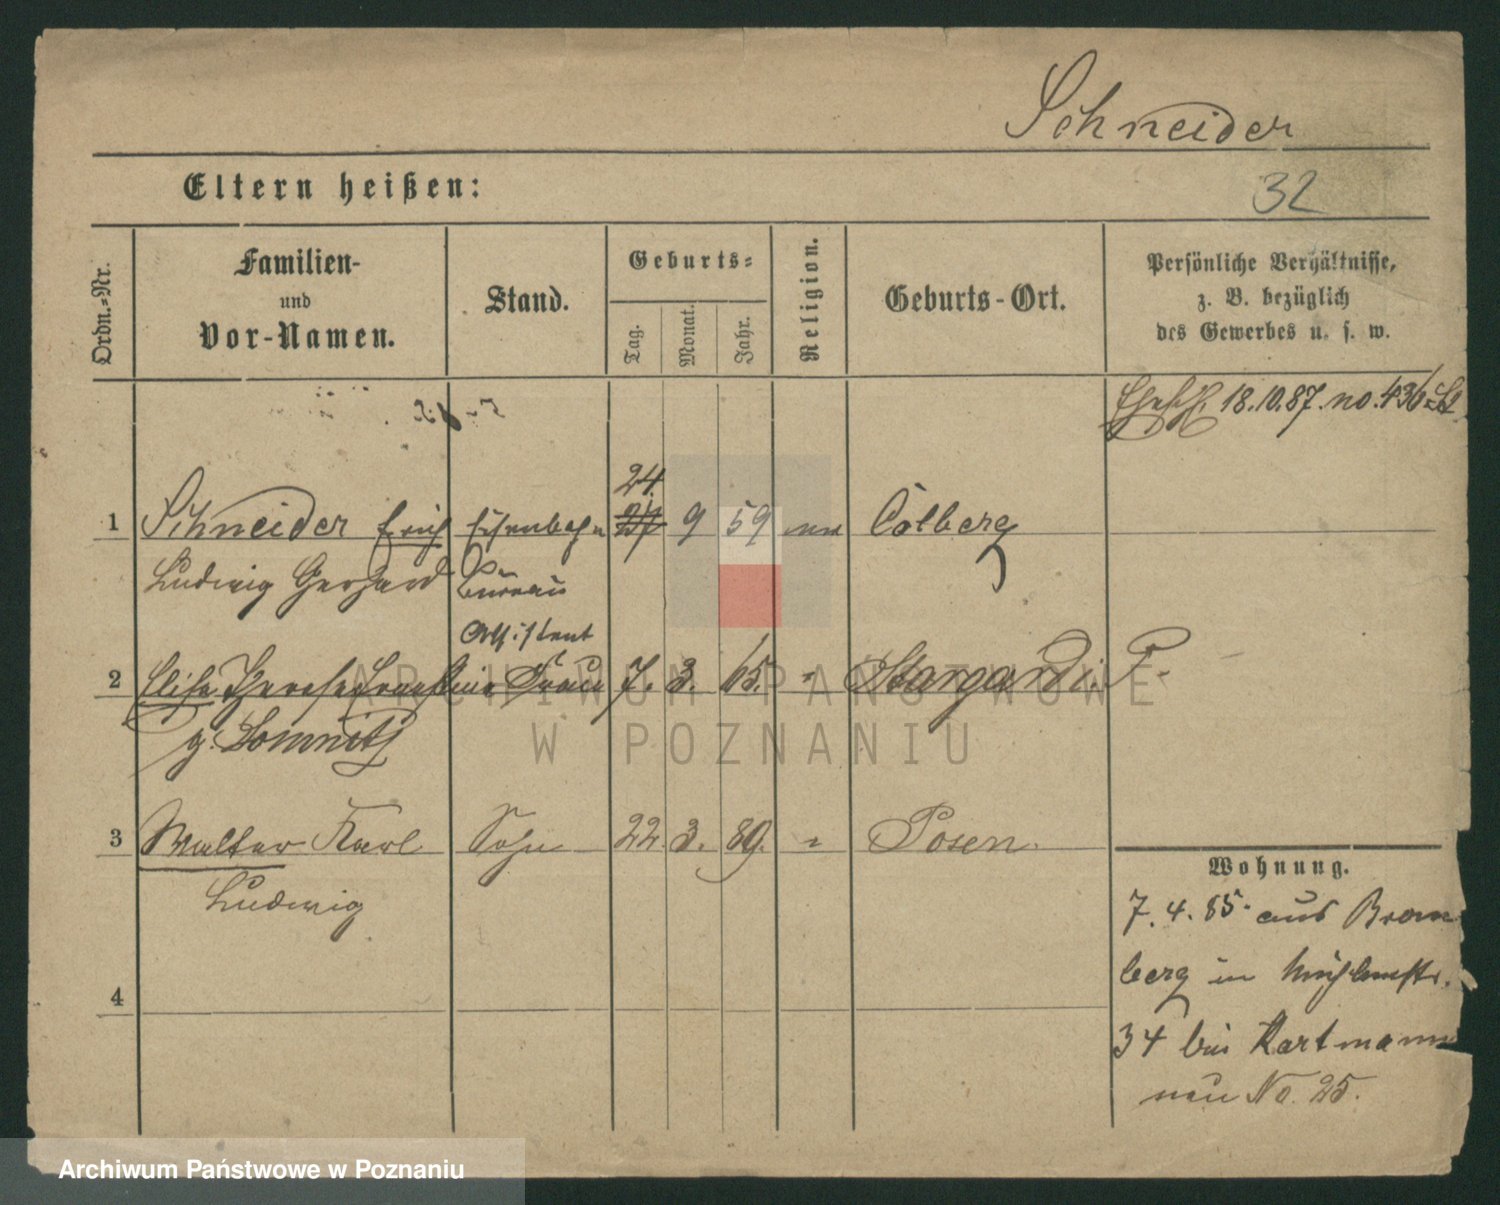 Schneider
Eltern heißen:
32
Ordn.-Nr.
Familien-
und
Vor-Namen.
Stand.
Geburts-
Tag.
Monat.
Jahr.
Religion.
Geburts-Ort.
Persönliche Verhältnisse,
z. B. bezüglich
des Gewerbes u. s. w.
18.10.87. no. 436
24.
1 Schneider Erich Eisenbahn 27 9 59 Colberg
Ludwig Gerhard Büreau
Assistent
2 Elise Therese Ernestine Frau 7. 3. 65. " Stargard i. P.
g. Lomnitz
3 Walter Karl Sohn 22. 3. 89. " Posen.
Ludwig
4
Wohnung.
7. 4. 85. aus Brom
berg in Mühlenstr.
34 bei Hartmann
neu No. 25.
ARCHIWUM PAŃSTWOWE
W POZNANIU
Archiwum Państwowe w Poznaniu